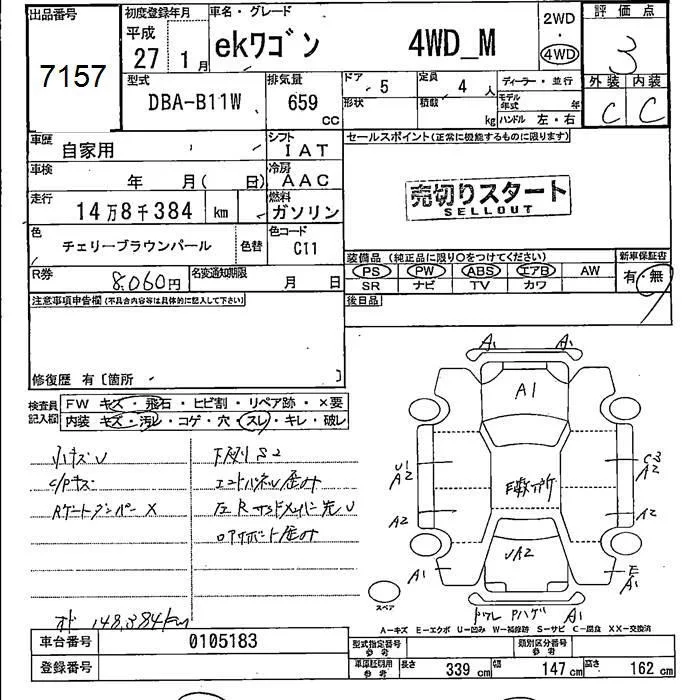 出品番号
7157
初度登録年月
平成
27 1月
車名・グレード
ekワゴン 4WD_M
2WD
・
4WD
評価点
3
型式
DBA-B11W
排気量
659 cc
ドア 5
定員 4 人
形状
積載 kg
ディーラー・並行
モデル年式 年
ハンドル 左・右
外装 内装
C C
車歴
自家用
シフト
IAT
車検
年 月( 日)
冷房
AAC
走行
14万8千384 km
燃料
ガソリン
色
チェリーブラウンパール
色替
色コード
C11
R券
8,060円
名変通知期限
月 日
セールスポイント(正常に機能するものに限ります)
売切りスタート
SELLOUT
装備品 (純正品に限り○をつけてください)
PS PW ABS エアB AW
SR ナビ TV カワ
新車保証書
有・無
後日品
注意事項申告欄(不具合内容等は具体的に記入して下さい)
修復歴 有〔箇所 〕
検査員記入欄
FW キズ・飛石・ヒビ割・リペア跡・×要
内装 キズ・汚レ・コゲ・穴・スレ・キレ・破レ
小キズU
C/Pキズ
Rゲートダンパー X
下廻り S2
エンドパネル歪み
左Rサイドメンバー先U
ロアサポート歪み
オド 148,384km
A1 A1
A1
U1
A2
C3
A2
A2
A2
UA2
A1
E
A1
スペア
Pハゲ A1
A-キズ E-エクボ U-凹み W-補修跡 S-サビ C-腐食 XX-交換済
車台番号
0105183
登録番号
型式指定番号
参考
類別区分番号
参考
車庫証明用
参考
長さ 339 cm 幅 147 cm 高さ 162 cm